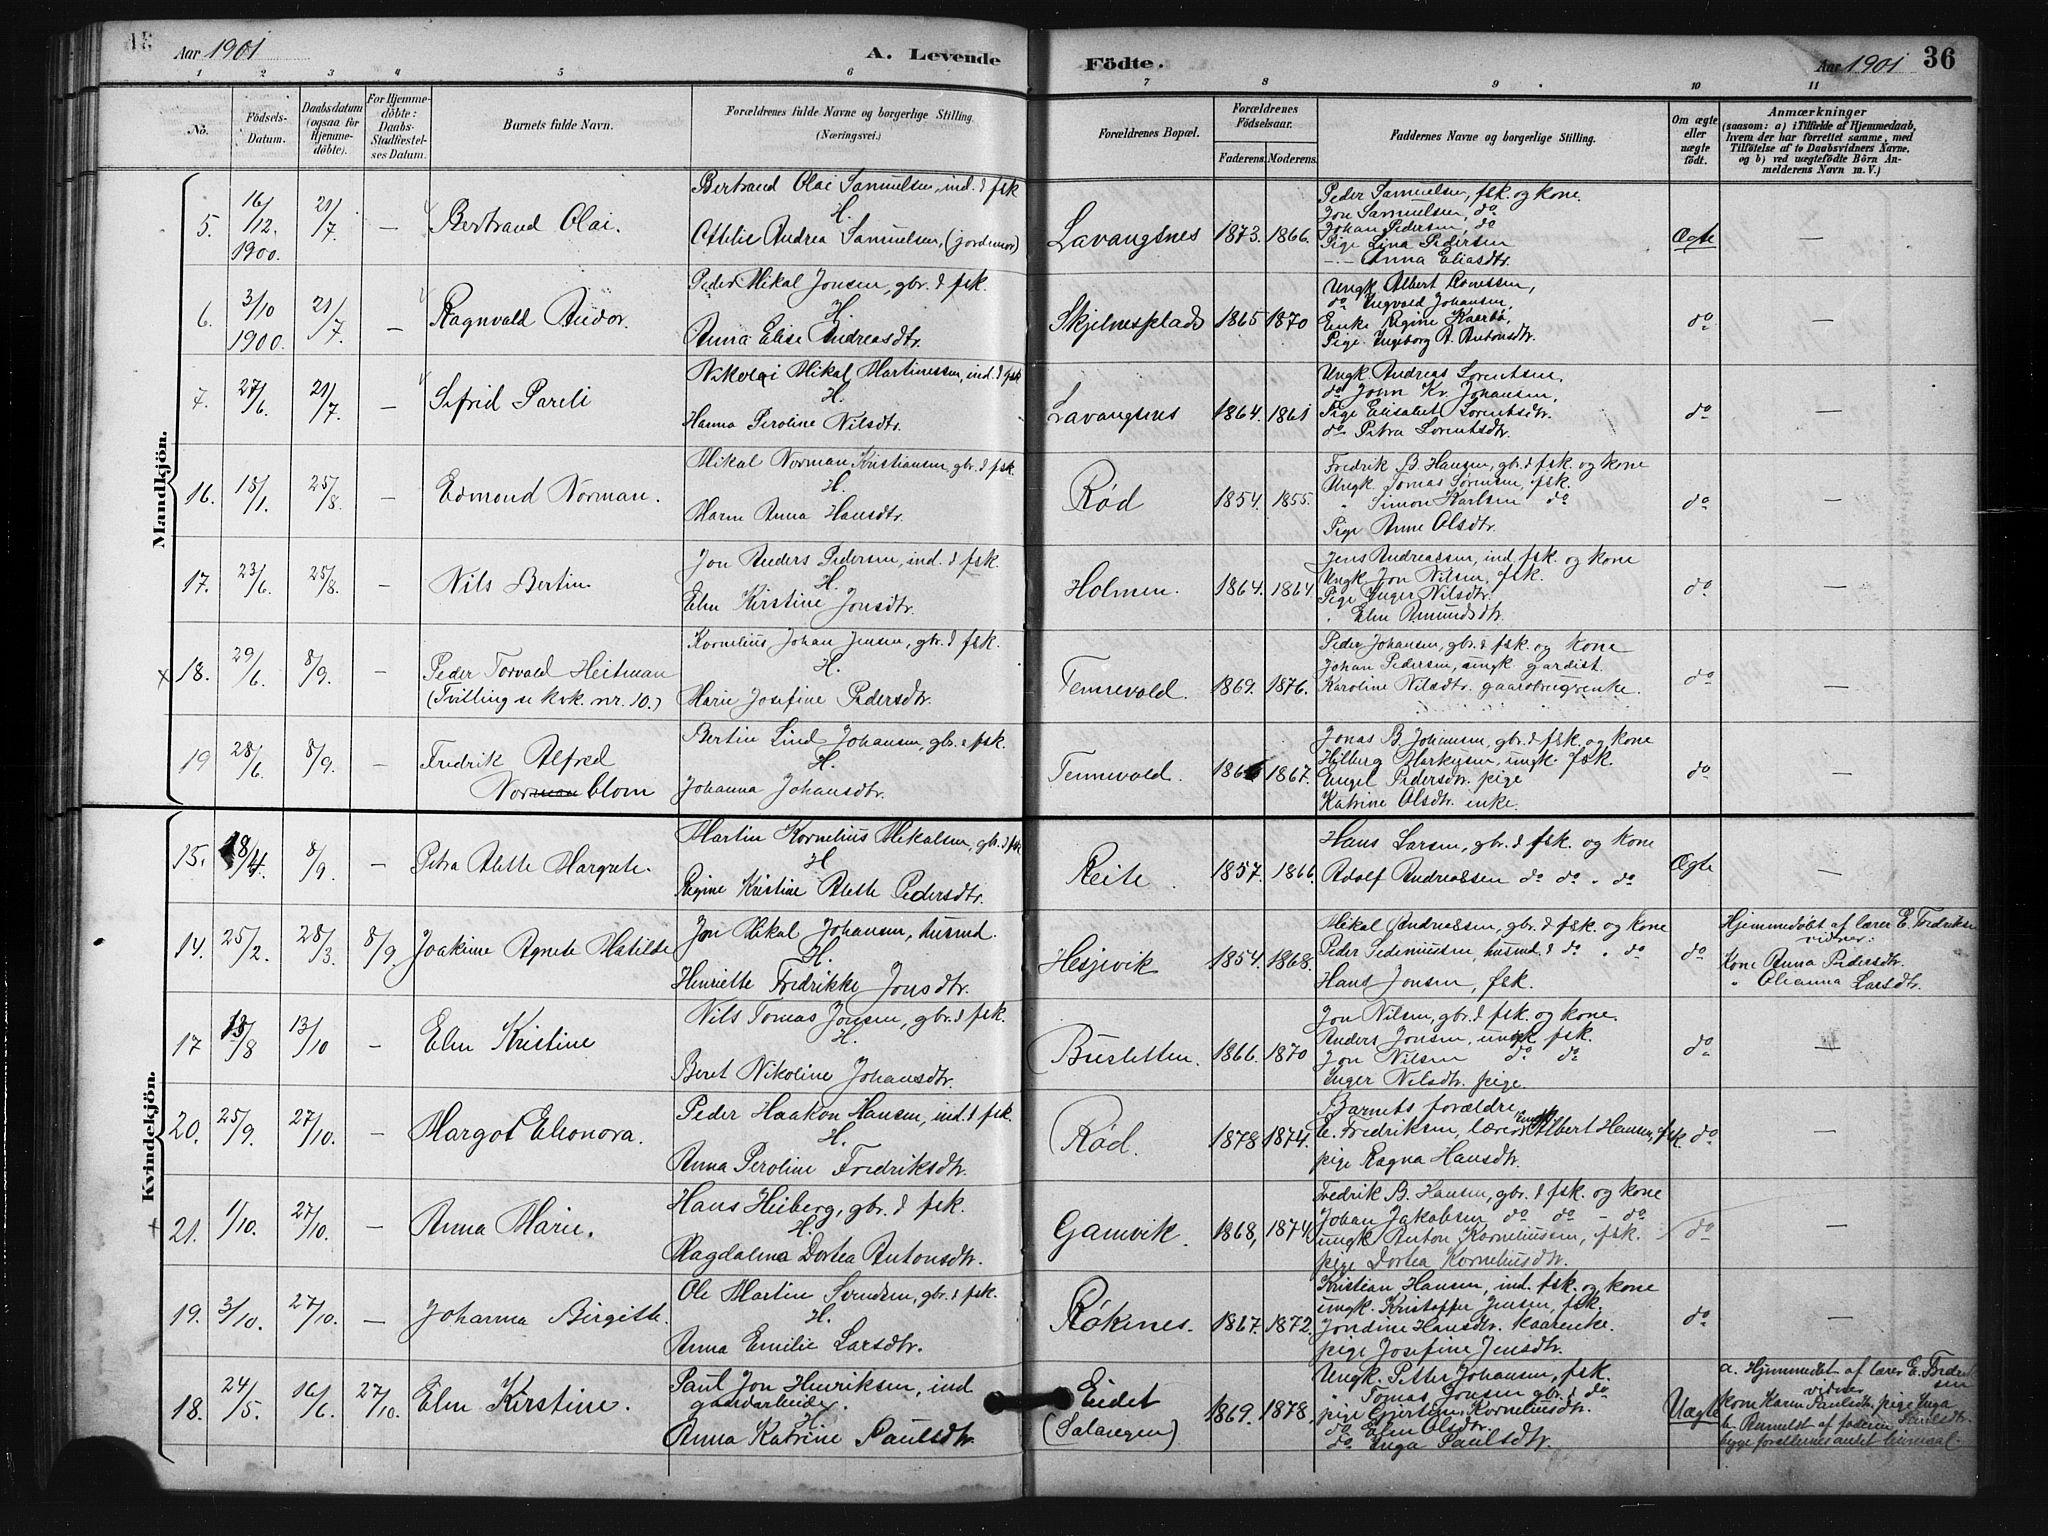 Aar 1901
A. Levende Födte.
Aar 1901 36
1 2 3 4 5 6 7 8 9 10 11
No.
Födsels-Datum.
Daabsdatum (ogsaa for Hjemmedöbte).
For Hjemmedöbte: Daabs-Stadfæstelses Datum.
Barnets fulde Navn.
Forældrenes fulde Navne og borgerlige Stilling. (Næringsvei.)
Forældrenes Bopæl.
Forældrenes Födselsaar.
Faderens. Moderens.
Faddernes Navne og borgerlige Stilling.
Om ægte eller uægte födt.
Anmærkninger
(saasom: a) i Tilfælde af Hjemmedaab, hvem der har forrettet samme, med Tilföielse af to Daabsvidners Navne, og b) ved uægtefödte Börn Anmelderens Navn m. V.)
Mandkjön.
5. 16/12. 1900. 21/7 — Bertrand Olai.
Bertrand Olai Samuelsen, ind. & fsk
H.
Ottilie Andrea Samuelsen, (jordemor)
Lavangsnes 1873. 1866.
Peder Samuelsen, fsk. og kone.
Jon Samuelsen, do
Johan Pedersen, do
Pige Lina Pedersen
— Anna Eliasdtr.
Ægte —
6. 3/10 1900. 21/7. — Ragnvald Audor.
Peder Mikal Jonsen, gbr. & fsk.
H.
Anna Elise Andreasdtr.
Skjelnesplads 1865 1870
Ungk. Albert
do Ingvald Johansen,
Enke Regine Kaarbø,
Pige Ingeborg A. Antonsdtr.
do —
7. 27/6. 21/7. — Sifrid Pareli
Nikolai Mikal Martinessen, ind. & fsk
H.
Hanna Peroline Nilsdtr.
Lavangsnes 1864. 1861
Ungk. Andreas Lorentsen,
do John Kr. Johansen,
Pige Elisabet Lorentsdtr.
do Petra Lorentsdtr.
do —
16. 15/1. 25/8. — Edmond Norman.
Mikal Norman Kristiansen, gbr. & fsk.
H.
Maren Anna Hansdtr.
Rød 1854. 1855.
Fredrik B. Hansen, gbr. & fsk. og kone
Ungk. Tomas Sørensen, fsk.
" Simon Karlsen do
Pige Anne Olsdtr.
do —
17. 23/6. 25/8. — Nils Bertin.
Jon Anders Pedersen, ind. & fsk.
H.
Elen Kirstine Jonsdtr.
Holmen. 1864. 1864.
Jens Andreassen, ind. fsk. og kone
Ungk. Jon Nilsen, fsk.
Pige Inger Nilsdtr.
" Elen Amundsdtr.
do —
18. 29/6. 8/9. — Peder Torvald Heitman
(Tvilling se kvk. nr. 10.)
Kornelius Johan Jensen, gbr. & fsk.
H.
Marie Josefine Pedersdtr.
Tennevold. 1869. 1876.
Peder Johansen, gbr. & fsk. og kone
Johan Pedersen, ungk. gardist.
Karoline Nilsdtr. gaardbrugrenke.
do —
19 28/6. 8/9. — Fredrik Alfred
Norman blom
Bertin Lind Johansen, gbr. & fsk.
H.
Johanna Johansdtr.
Tennevold. 1867.
Jonas B. Johansen, gbr. & fsk. og kone
Hilberg Markusen, ungk. fsk.
Engel Pedersdtr. pige
Katrine Olsdtr. enke.
do —
Kvindekjön.
15. 18/4. 8/9. — Petra Alette Margrete.
Martin Kornelius Mikalsen, gbr. & fsk
H.
Regine Kristine Aleth Pedersdtr.
Reite. 1857. 1866.
Hans Larsen, gbr. & fsk. og kone
Adolf Andreassen do do " do
Ægte —
14. 25/2. 28/3. 8/9. Joakime Agnete Matilde
Jon Mikal Johansen, husmd.
H.
Henriette Fredrikke Jonsdtr.
Hesjevik 1854. 1868.
Mikal Andreassen, gbr. & fsk og kone
Peder Pedersen, husmd. & do " do
Hans Jonsen, fsk.
do
Hjemmedøbt af lærer E. Fredriksen
vidner:
Kone Anna Pedersdtr.
" Olianna Larsdtr.
17 13/8 13/10 — Elen Kristine
Nils Tomas Jonsen, gbr. & fsk.
H.
Beret Nikoline Johansdtr.
Busletten. 1866. 1870
Jon Nilsen, gbr. & fsk. og kone.
Anders Jonsen, ungk. fsk.
Jon Nilsen do do
Inger Nilsdtr. pige.
do —
20. 25/9. 27/10. — Margot Eleonora.
Peder Haakon Hansen, ind. & fsk.
H.
Anna Peroline Fredriksdtr.
Rød. 1878 1874.
Barnets forældre
E. Fredriksen, lærer, Ungk. Albert Hansen, fsk.
pige Ragna Hansdtr.
do —
21. 1/10. 27/10. — Anna Marie.
Hans Heiberg, gbr. & fsk.
H.
Magdalena Dortea Antonsdtr.
Gamvik. 1868, 1874
Fredrik B. Hansen, gbr. & fsk. og kone
Johan Jakobsen do do — do
ungk. Anton Korneliussen, fsk.
pige Dortea Korneliusdtr.
do —
19. 3/10. 27/10. — Johanna Birgitte.
Ole Martin Svendsen, gbr. & fsk.
H.
Anna Emilie Larsdtr.
Røkenes. 1867. 1872.
Kristian Hansen, ind. fsk. og kone
ungk. Kristoffer Jensen, fsk.
Jondine Hansdtr. kaarenke.
pige Josefine Jensdtr.
do —
18. 24/5. 16/6. 27/10. Elen Kirstine.
Paul Jon Henriksen, ind
gaardarbeider.
H.
Anna Katrine Paulsdtr.
Eidet
(Salangen) 1869. 1878.
Ungk. Petter Johansen, fsk.
" Tomas Jonsen gbr. & do
pige Korneliusdtr.
do Elen Olsdtr.
do Inga Paulsdtr.
Uægte
a. Hjemmedøbt af lærer E. Fredriksen
vidner
kone Karen Paulsdtr. pige Inga Paulsdtr.
b. Anmeldt af faderen
begge forældrenes andet leiermaal.